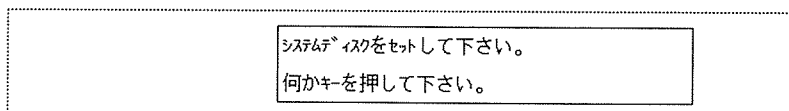 ｼｽﾃﾑﾃﾞｨｽｸをｾｯﾄして下さい。
何かｷｰを押して下さい。